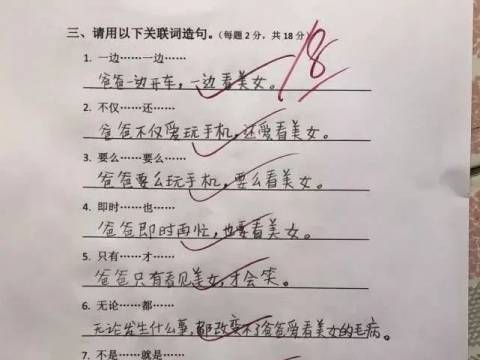 三、请用以下关联词造句。(每题2分，共18分)
18
1. 一边……一边……
爸爸一边开车，一边看美女。
2. 不仅……还……
爸爸不仅爱玩手机，还爱看美女。
3. 要么……要么……
爸爸要么玩手机，要么看美女。
4. 即时……也……
爸爸即时再忙，也要看美女。
5. 只有……才……
爸爸只有看见美女，才会笑。
6. 无论……都……
无论发生什么事，都改变不了爸爸爱看美女的毛病。
7. 不是……就是……